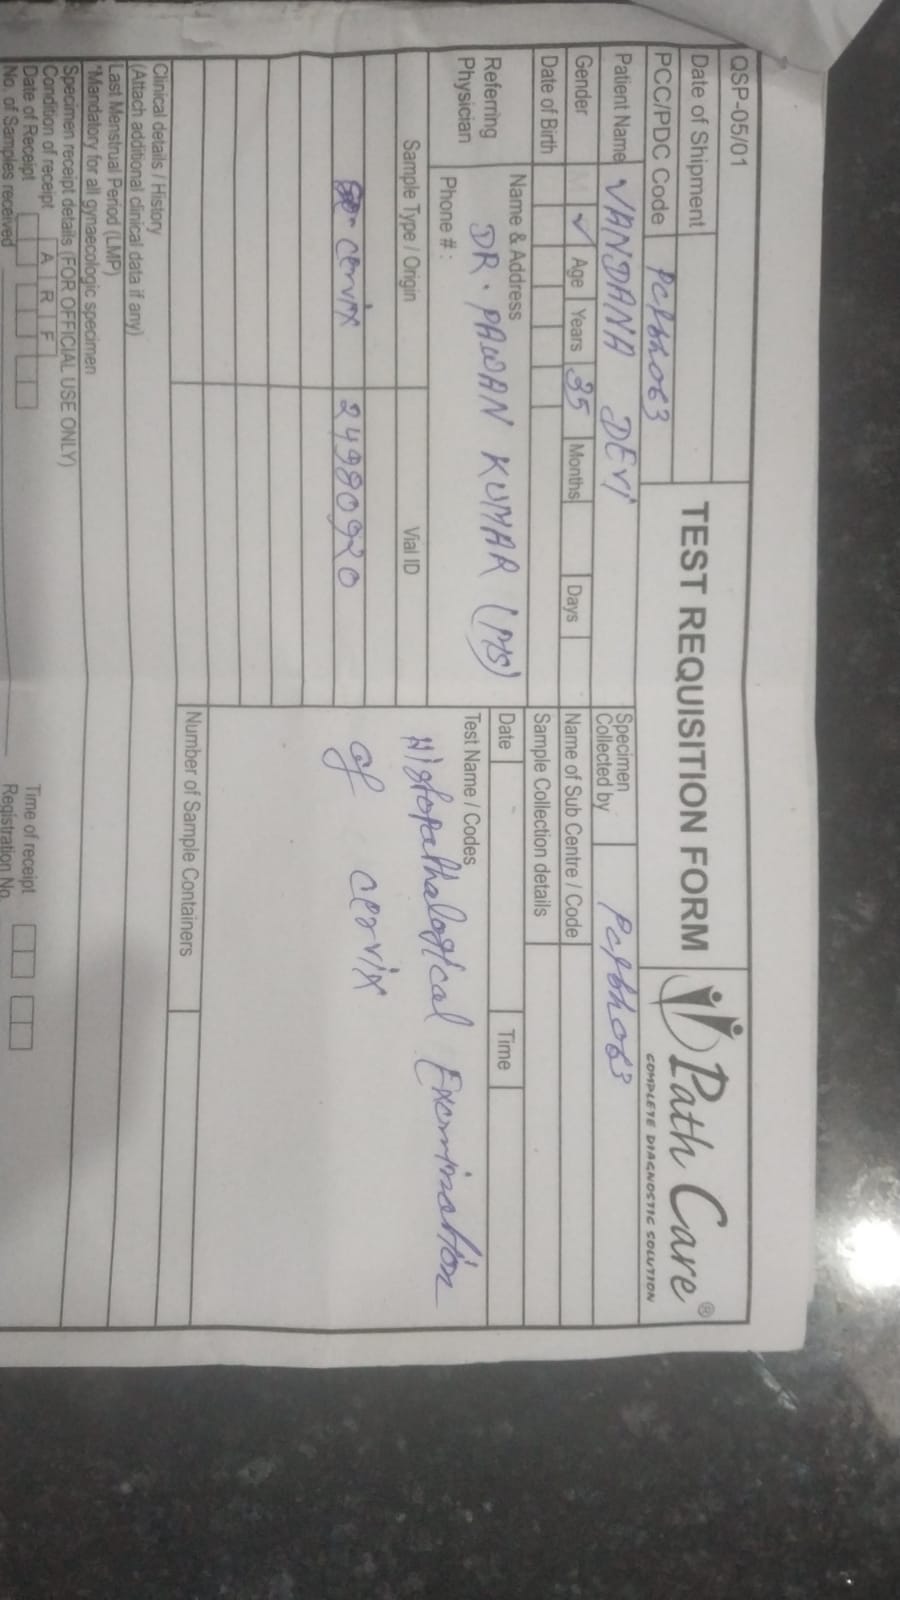 QSP-05/01
TEST REQUISITION FORM
Path Care®
COMPLETE DIAGNOSTIC SOLUTION
Date of Shipment
PCC/PDC Code PCPbh063
Patient Name VANDANA DEVI
Specimen Collected by PCPbh063
Gender M ✓ Age Years 35 Months Days
Name of Sub Centre / Code
Date of Birth
Sample Collection details
Referring Physician
Name & Address
DR. PAWAN KUMAR (MS)
Phone # :
Date Time
Test Name / Codes
Histopathalogical Examination
of cervix
Sample Type / Origin Vial ID
cervix 24980920
Number of Sample Containers
Clinical details / History
(Attach additional clinical data if any)
Last Menstrual Period (LMP)
*Mandatory for all gynaecologic specimen
Specimen receipt details (FOR OFFICIAL USE ONLY)
Condition of receipt A R F
Date of Receipt Time of receipt
No. of Samples received Registration No.